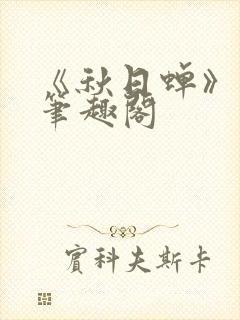 《秋日蝉》
笔趣阁
宾科夫斯卡